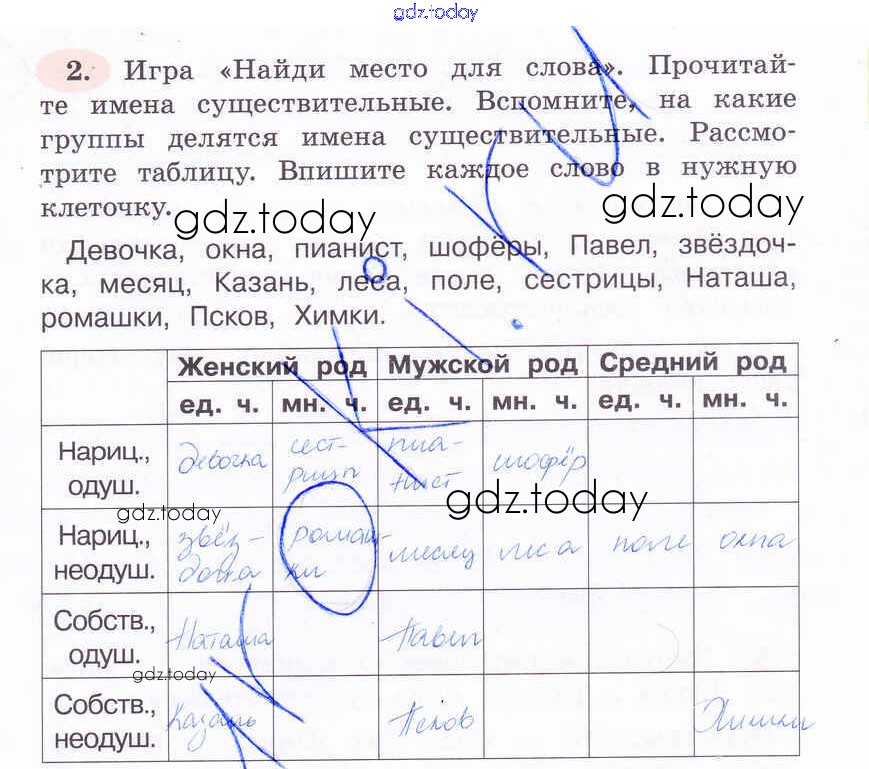 gdz.today
2. Игра «Найди место для слова». Прочитай-
те имена существительные. Вспомните, на какие
группы делятся имена существительные. Рассмо-
трите таблицу. Впишите каждое слово в нужную
клеточку.
gdz.today gdz.today
Девочка, окна, пианист, шофёры, Павел, звёздоч-
ка, месяц, Казань, леса, поле, сестрицы, Наташа,
ромашки, Псков, Химки.
Женский род Мужской род Средний род
ед. ч. мн. ч. ед. ч. мн. ч. ед. ч. мн. ч.
Нариц., одуш. девочка сест- пиа- шофёр
рицы нист
gdz.today gdz.today
Нариц., неодуш. звёз- ромаш- месяц леса поле окна
дочка ки
Собств., одуш. Наташа Павел
gdz.today
Собств., неодуш. Казань Псков Химки